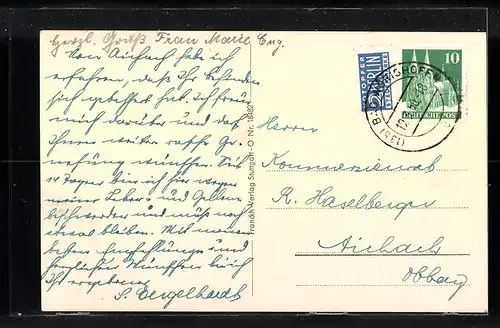 Herzl. Gruß Frau Marie Eng.
Von Aichach habe ich
erfahren, daß Ihr Befinden
sich gebessert hat. Ich freue
mich darüber und darf
Ihnen weiter rasche Ge-
nesung wünschen. Seit
10 Tagen bin ich hier wegen
meiner Leber u. Gallen
beschwerden und muß noch
einmal bleiben. Mit meinen
besten Empfehlungen und
herzlichen Wünschen bin ich
Ihr ergebener
S. Engelhardt
Franckh-Verlag Stuttgart-O Nr. 18482
NOTOPFER
2 BERLIN
STEUERMARKE
10
DEUTSCHE POST
(13b) BAD WÖRISHOFEN
Herrn
Kommerzienrat
R. Haselberger
Aichach
Obbay